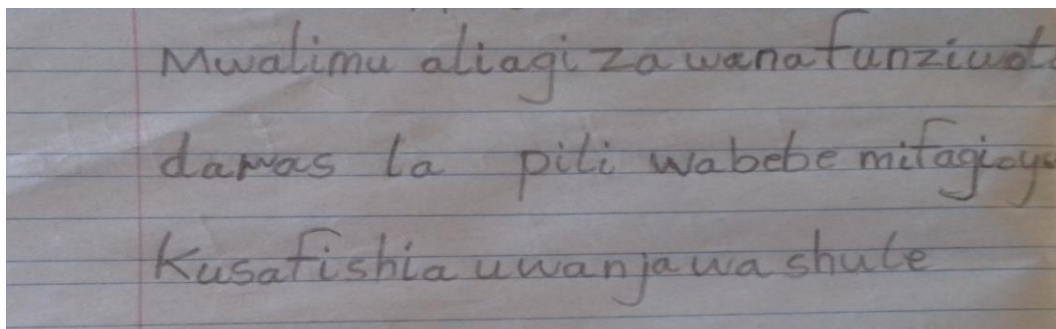 Mwalimu aliagiza wanafunzi
damas la pili wabebe
kusafishia uwanja wa shule